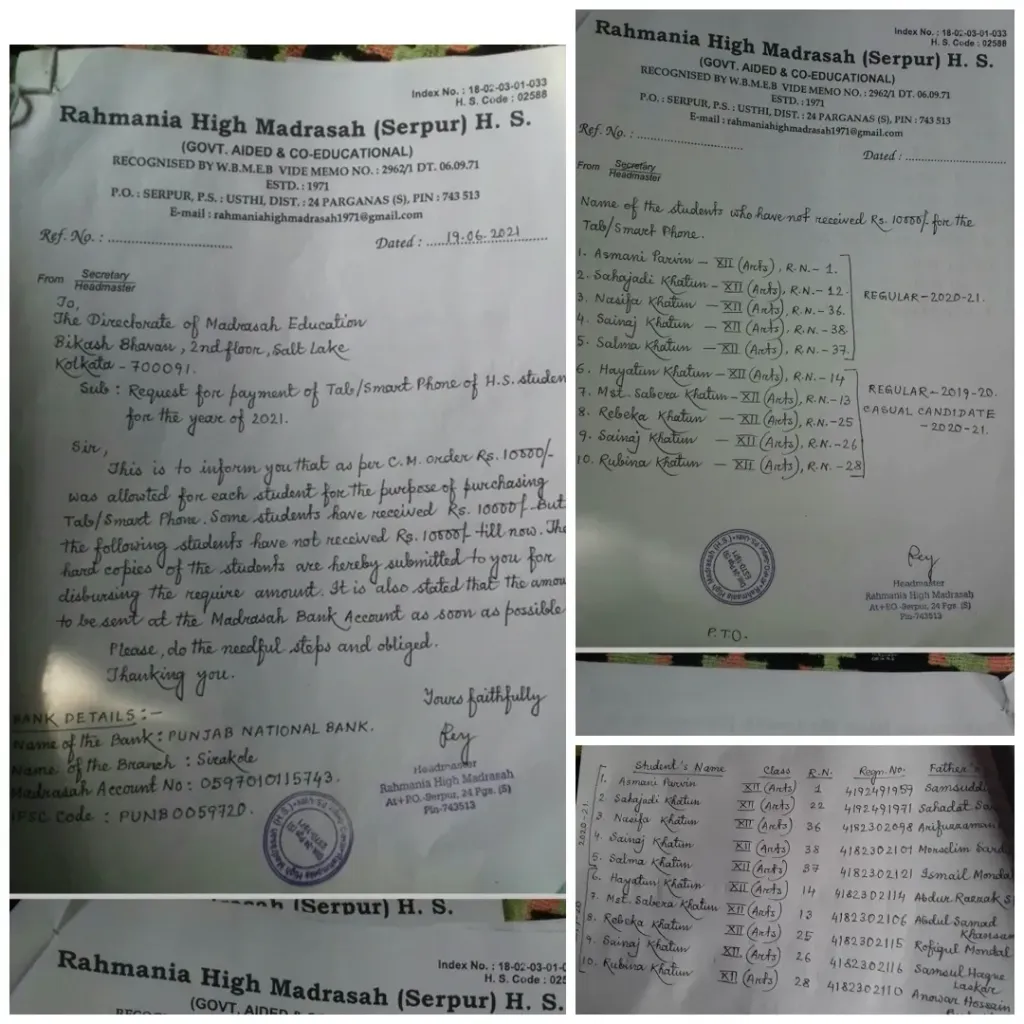 Index No. : 18-02-03-01-033
H. S. Code : 02588
Rahmania High Madrasah (Serpur) H. S.
(GOVT. AIDED & CO-EDUCATIONAL)
RECOGNISED BY W.B.M.E.B VIDE MEMO NO. : 2962/1 DT. 06.09.71
ESTD. : 1971
P.O. : SERPUR, P.S. : USTHI, DIST. : 24 PARGANAS (S), PIN : 743 513
E-mail : rahmaniahighmadrasah1971@gmail.com
Ref. No. : ............ Dated : 19.06.2021
From Secretary
Headmaster
To,
The Directorate of Madrasah Education
Bikash Bhavan, 2nd floor, Salt Lake
Kolkata - 700091.
Sub : Request for payment of Tab/Smart Phone of H.S. studen
for the year of 2021.
Sir,
This is to inform you that as per C.M. order Rs. 10000/-
was allowted for each student for the purpose of purchasing
Tab/Smart Phone. Some students have received Rs. 10000/-. But
the following students have not received Rs. 10000/- till now. The
hard copies of the students are hereby submitted to you for
disbursing the require amount. It is also stated that the amou
to be sent at the Madrasah Bank Account as soon as possible
Please, do the needful steps and obliged.
Thanking you.
Yours faithfully
BANK DETAILS :-
Name of the Bank : PUNJAB NATIONAL BANK.
Name of the Branch : Sirakole
Madrasah Account No : 0597010115743.
IFSC Code : PUNB0059720.
Headmaster
Rahmania High Madrasah
At+P.O.-Serpur, 24 Pgs. (S)
Pin-743513
(Serpur) H. S.
Index No. : 18-02-03-01-0
H. S. Code : 025
Rahmania High Madrasah (Serpur) H. S.
(GOVT. AIDED & CO-EDUCATIONAL)
Index No. : 18-02-03-01-033
H. S. Code : 02588
Rahmania High Madrasah (Serpur) H. S.
(GOVT. AIDED & CO-EDUCATIONAL)
RECOGNISED BY W.B.M.E.B VIDE MEMO NO. : 2962/1 DT. 06.09.71
ESTD. : 1971
P.O. : SERPUR, P.S. : USTHI, DIST. : 24 PARGANAS (S), PIN : 743 513
E-mail : rahmaniahighmadrasah1971@gmail.com
Ref. No. : ............ Dated : ............
From Secretary
Headmaster
Name of the students who have not received Rs. 10000/- for the
Tab/Smart Phone.
1. Asmani Parvin - XII (Arts), R.N.- 1.
2. Sahajadi Khatun - XII (Arts), R.N.- 12.
3. Nasifa Khatun - XII (Arts), R.N.- 36.
4. Sainaj Khatun - XII (Arts), R.N.- 38.
5. Salma Khatun - XII (Arts), R.N.- 37.
REGULAR-2020-21.
6. Hayatun Khatun - XII (Arts), R.N.-14
7. Mst. Sabera Khatun - XII (Arts), R.N.-13
8. Rebeka Khatun - XII (Arts), R.N.-25
9. Sainaj Khatun - XII (Arts), R.N.-26
10. Rubina Khatun - XII (Arts), R.N.-28
REGULAR-2019-20.
CASUAL CANDIDATE
-2020-21.
Headmaster
Rahmania High Madrasah
At+P.O.-Serpur, 24 Pgs. (S)
Pin-743513
P.T.O.
Student's Name Class R.N. Regn. No. Father's
1. Asmani Parvin XII (Arts) 1 4192491959 Samsuddi
2. Sahajadi Khatun XII (Arts) 22 4192491971 Sahadat
3. Nasifa Khatun XII (Arts) 36 4182302098
4. Sainaj Khatun XII (Arts) 38 4182302101 Morselim Sard
5. Salma Khatun XII (Arts) 37 4182302121 Ismail Mondal
6. Hayatun Khatun XII (Arts) 14 4182302114 Abdur Razzak S
7. Mst. Sabera Khatun XII (Arts) 13 4182302106 Abdul Samad
8. Rebeka Khatun XII (Arts) 25 4182302115 Rofiqul Mondal
9. Sainaj Khatun XII (Arts) 26 4182302116 Samsul Haque
Laskar
10. Rubina Khatun XII (Arts) 28 4182302110 Anowar Hossein